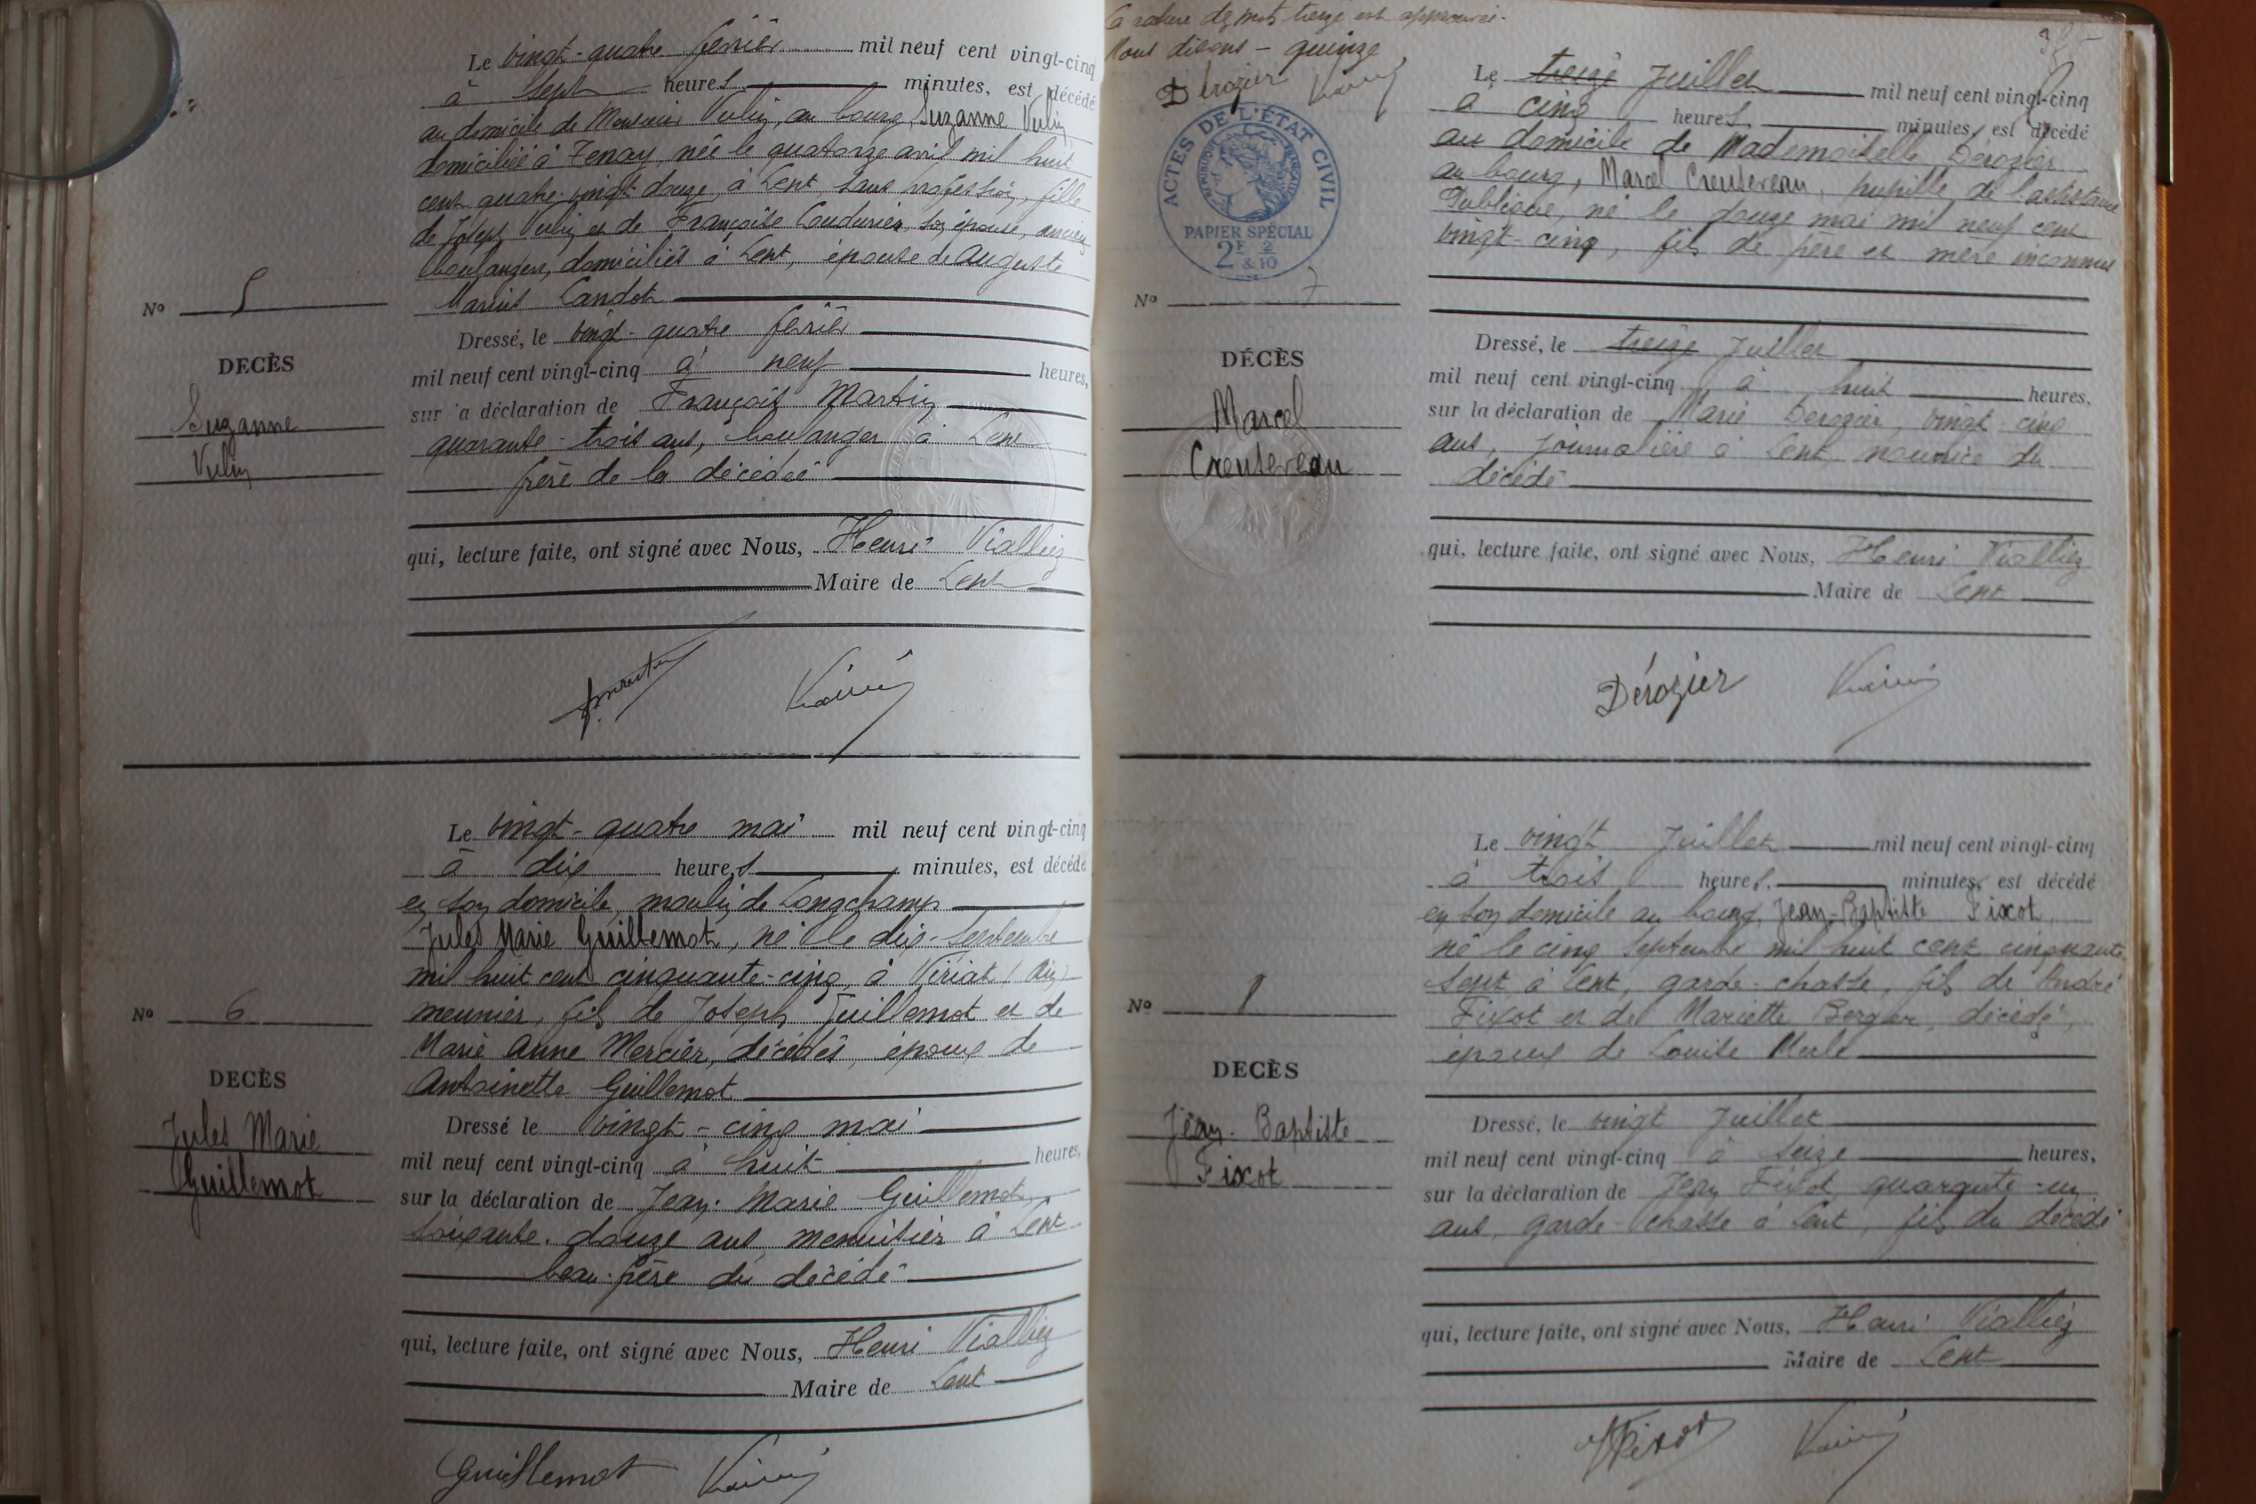 Le vingt-quatre février mil neuf cent vingt-cinq
à sept heures minutes, est décédé
au domicile de Monsieur Vulin, au bourg, Suzanne Vulin
domiciliée à Tenay, née le quatorze avril mil huit
cent quatre-vingt-douze, à Lent, sans profession, fille
de Joseph Vulin et de Françoise Coudurier, son épouse, anciens
boulangers, domiciliés à Lent, épouse de Auguste
Marius Candot
Nº 5
DECÈS
Suzanne
Vulin
Dressé, le vingt-quatre février
mil neuf cent vingt-cinq à neuf heures,
sur la déclaration de François Martin
quarante-trois ans, boulanger à Lent
frère de la décédée
qui, lecture faite, ont signé avec Nous, Henri Viallier
Maire de Lent
Le vingt-quatre mai mil neuf cent vingt-cinq
à dix heures minutes, est décédé
en son domicile, moulin de Longchamp
Jules Marie Guillemot, né le dix-septembre
mil huit cent cinquante-cinq, à Viriat (Ain)
meunier, fils de Joseph Guillemot et de
Marie Anne Mercier, décédés, époux de
Antoinette Guillemot
Nº 6
DECÈS
Jules Marie
Guillemot
Dressé le vingt-cinq mai
mil neuf cent vingt-cinq à huit heures,
sur la déclaration de Jean-Marie Guillemot,
soixante-douze ans, menuisier à Lent
beau-frère du décédé
qui, lecture faite, ont signé avec Nous, Henri Viallier
Maire de Lent
Guillemot
La rature du mot treize est approuvée.
Nous disons - quinze
Dérozier
ACTES DE L'ÉTAT CIVIL
RÉPUBLIQUE FRANÇAISE
PAPIER SPÉCIAL
2F & 2/10
Le treize Juillet mil neuf cent vingt-cinq
à cinq heures minutes, est décédé
au domicile de Mademoiselle Dérozier
au bourg, Marcel Creuseveau, pupille de l'assistance
Publique, né le douze mai mil neuf cent
vingt-cinq, fils de père et mère inconnus
Nº 7
DÉCÈS
Marcel
Creuseveau
Dressé, le treize Juillet
mil neuf cent vingt-cinq à huit heures,
sur la déclaration de Marie Derozier, vingt-cinq
ans, journalière à Lent, nourrice du
décédé
qui, lecture faite, ont signé avec Nous, Henri Viallier
Maire de Lent
Dérozier
Le vingt Juillet mil neuf cent vingt-cinq
à trois heures minutes, est décédé
en son domicile au bourg, Jean-Baptiste Fixot,
né le cinq Septembre mil huit cent cinquante
sept à Lent, garde-chasse, fils de André
Fixot et de Mariette Berger, décédé,
époux de Louise Merle
Nº 8
DECÈS
Jean-Baptiste
Fixot
Dressé, le vingt Juillet
mil neuf cent vingt-cinq à seize heures,
sur la déclaration de Jean Fixot, quarante-un
ans, garde-chasse à Lent, fils du décédé
qui, lecture faite, ont signé avec Nous, Henri Viallier
Maire de Lent
Fixot